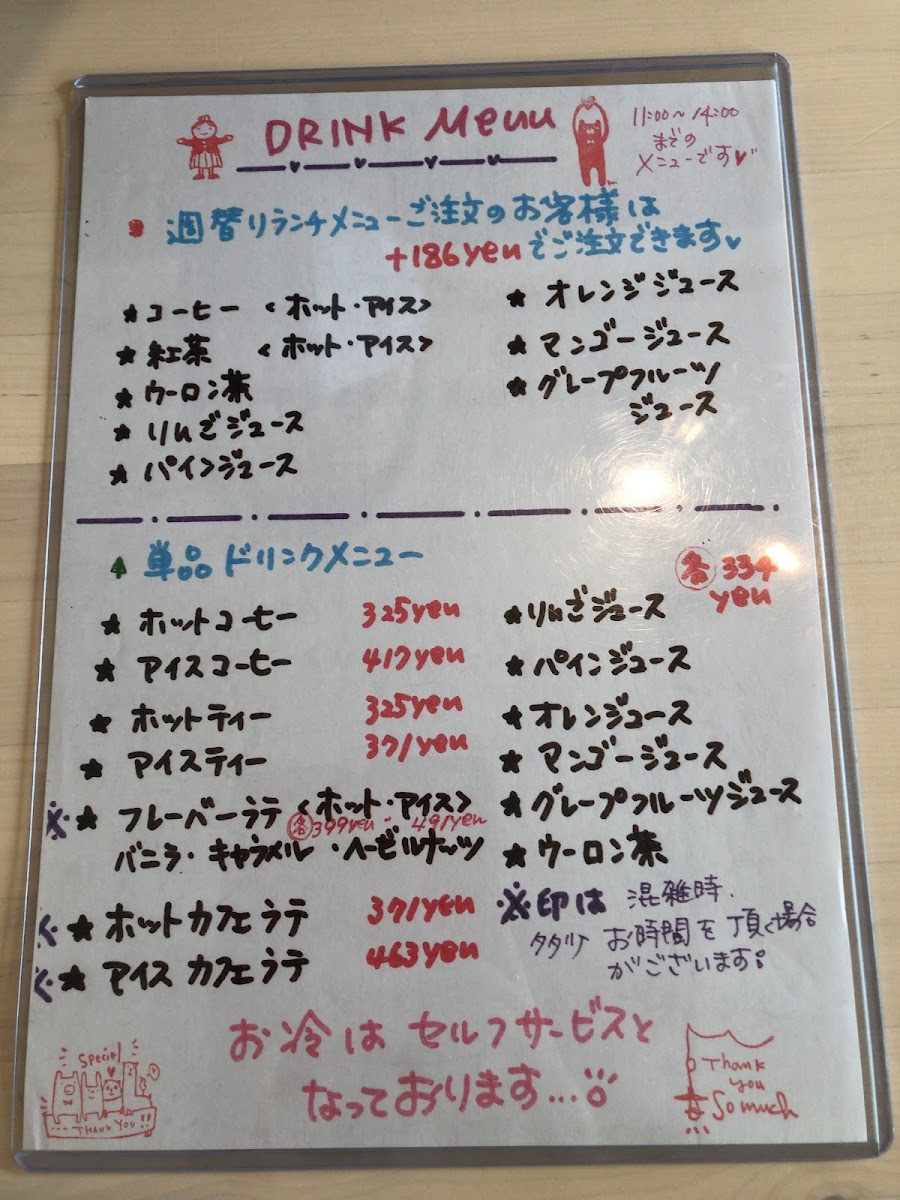 DRINK Menu
11:00～14:00
までの
メニューです♥
週替りランチメニューご注文のお客様は
+186yenでご注文できます♥
★コーヒー <ホット・アイス>
★紅茶 <ホット・アイス>
★ウーロン茶
★りんごジュース
★パインジュース
★オレンジジュース
★マンゴージュース
★グレープフルーツ
ジュース
単品ドリンクメニュー
★ホットコーヒー 325yen
★アイスコーヒー 417yen
★ホットティー 325yen
★アイスティー 371yen
※★フレーバーラテ<ホット・アイス>
各399yen・491yen
バニラ・キャラメル・ヘーゼルナッツ
★ホットカフェラテ 371yen
★アイスカフェラテ 463yen
各334
yen
★りんごジュース
★パインジュース
★オレンジュース
★マンゴージュース
★グレープフルーツジュース
★ウーロン茶
※印は混雑時、
お時間を頂く場合
がございます。
お冷はセルフサービスと
なっております...
Special
THANK YOU!!
Thank
you
So much